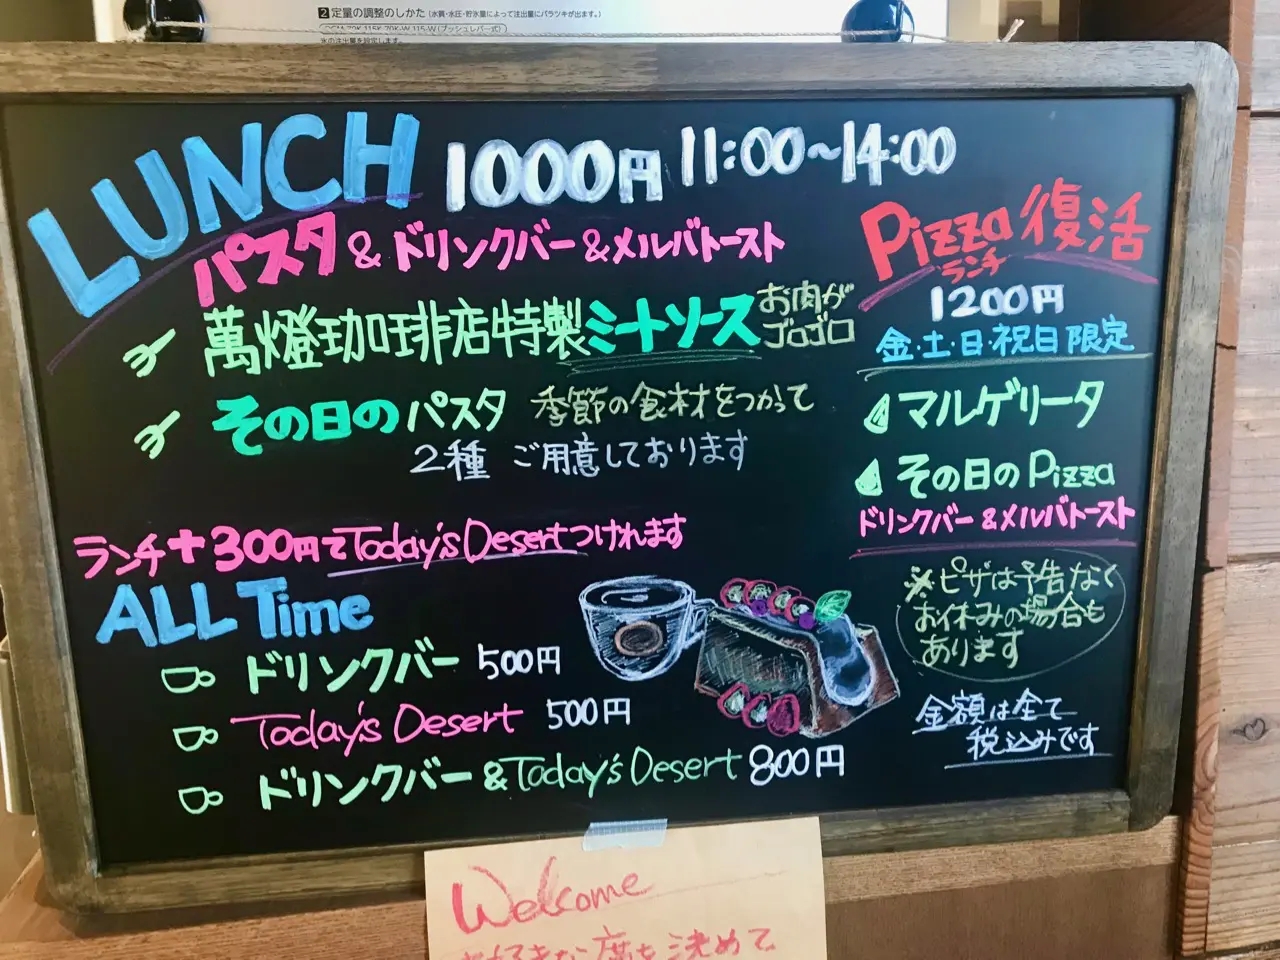 2 定量の調整のしかた (水質・水圧・貯氷量によって注出量にバラツキが出ます。)
氷の注出量を設定します。
LUNCH 1000円 11:00~14:00
パスタ & ドリンクバー & メルバトースト
萬燈珈琲店特製ミートソース お肉が
ゴロゴロ
その日のパスタ 季節の食材をつかって
2種 ご用意しております
ランチ+300円でToday's Desertつけれます
Pizza復活
ランチ
1200円
金・土・日・祝日限定
マルゲリータ
その日のPizza
ドリンクバー & メルバトースト
※ピザは予告なく
お休みの場合も
あります
金額は全て
税込みです
ALL Time
ドリンクバー 500円
Today's Desert 500円
ドリンクバー & Today's Desert 800円
Welcome
お好きな席を決めて